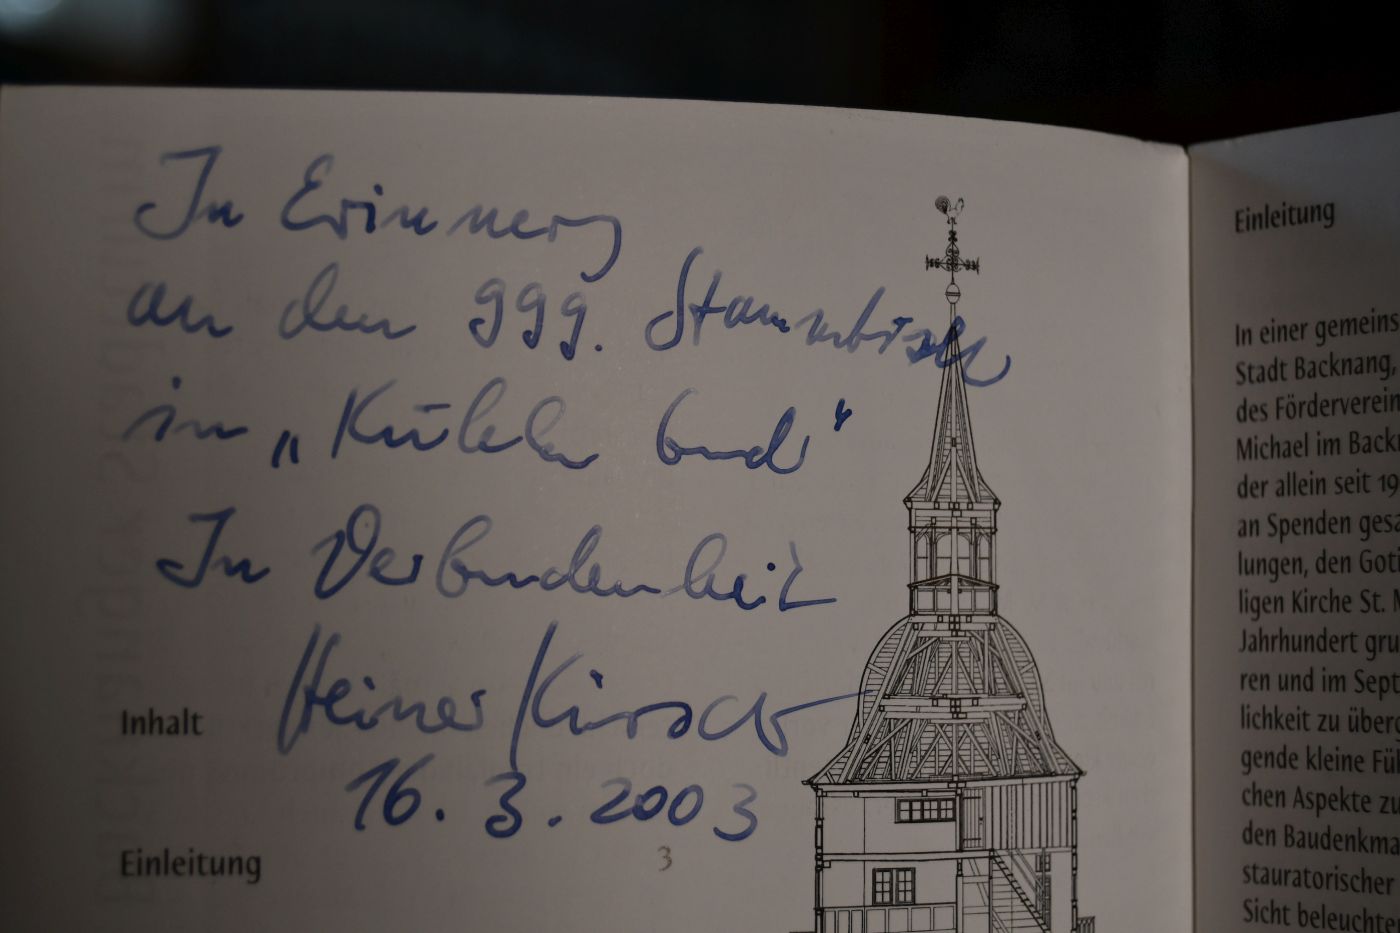 In Erinnerg
an den ggg. Stammtisch
in „Kühler Grund“
In Verbundenheit
Heiner Kirsch
16.3.2003
Inhalt
Einleitung
3
Einleitung
In einer gemeins
Stadt Backnang,
des Förderverein
Michael im Back
der allein seit 19
an Spenden gesa
lungen, den Goti
ligen Kirche St. M
Jahrhundert gru
ren und im Sept
lichkeit zu überg
gende kleine Fül
chen Aspekte zu
den Baudenkma
stauratorischer
Sicht beleuchte